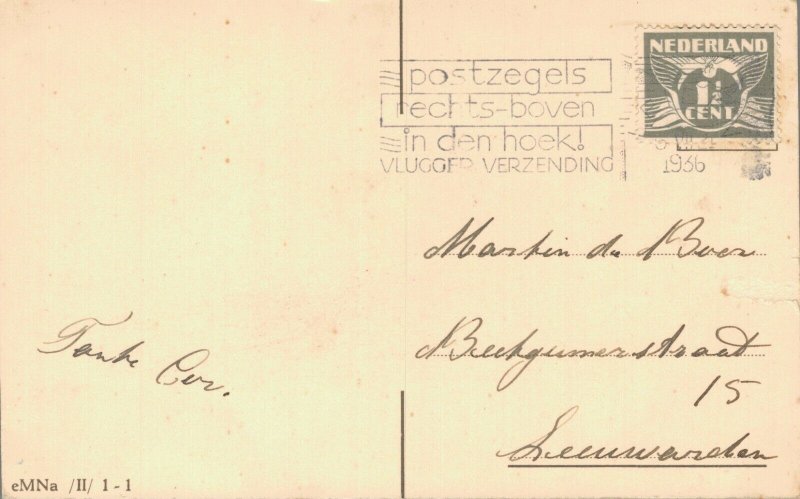 postzegels
rechts-boven
in den hoek!
VLUGGER VERZENDING
NEDERLAND
1½
CENT
1936
Martin de Boer
Beetgumerstraat
15
Leeuwarden
Tante Cor.
eMNa /II/ 1-1